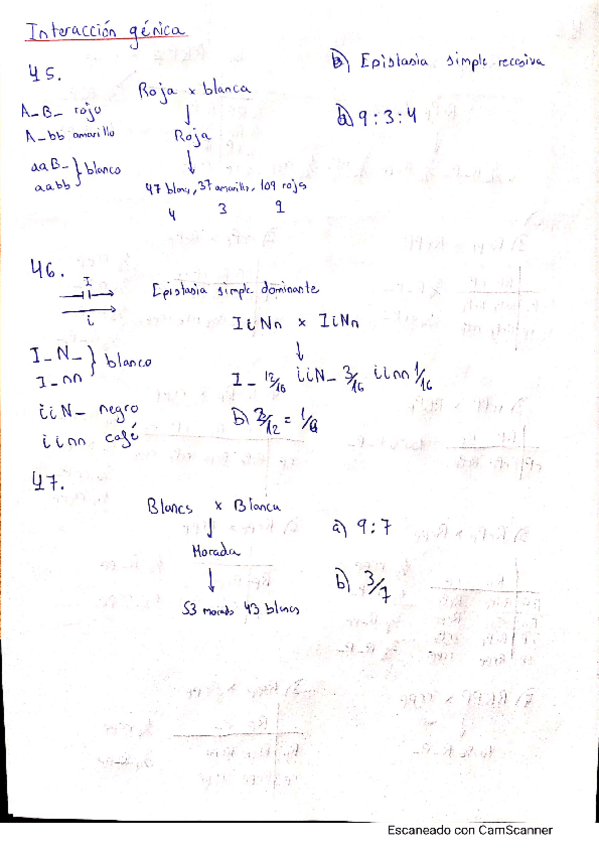 Interacción génica
45.
Roja x blanca
A_B_ rojo
A_bb amarillo
aaB_
aabb } blanco
Roja
47 blancs, 37 amarillo, 109 rojs
4 3 9
b) Epistasia simple recesiva
a) 9:3:4
46.
I
i
Epistasia simple dominante
IiNn x IiNn
I_N_
I_nn } blanco
iiN_ negro
iinn café
I_ 12/16 iiN_ 3/16 iinn 1/16
b) 2/12 = 1/6
47.
Blancs x Blanca
Morada
53 morads 43 blancs
a) 9:7
b) 3/7
Escaneado con CamScanner